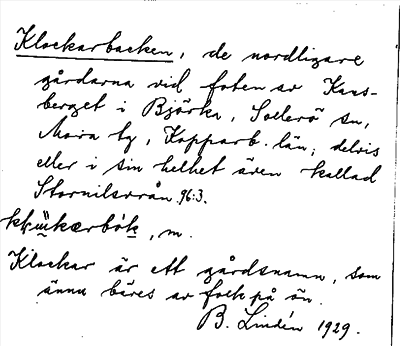 Klockarbacken, de nordligare
gårdarna vid foten av Kaas-
berget i Björka, Sollerö sn,
Mora tg, Kopparb. län; delvis
eller i sin helhet även kallad
96:3.
m.
Klockar är ett gårdsnamn, som
ännu bäres av folk på ön.
B. Lindén 1929.